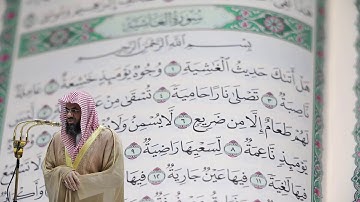 سُورَةُ الْغَاشِيَةِ
بِسْمِ اللَّهِ الرَّحْمَٰنِ الرَّحِيمِ
هَلْ أَتَىٰكَ حَدِيثُ الْغَٰشِيَةِ ١ وُجُوهٌ يَوْمَئِذٍ خَٰشِعَةٌ ٢ عَامِلَةٌ
نَّاصِبَةٌ ٣ تَصْلَىٰ نَارًا حَامِيَةً ٤ تُسْقَىٰ مِنْ
لَهُمْ طَعَامٌ إِلَّا مِن ضَرِيعٍ ٦ لَّا يُسْمِنُ وَلَا
يَوْمَئِذٍ نَّاعِمَةٌ ٨ لِّسَعْيِهَا رَاضِيَةٌ ٩
فِيهَا لَٰغِيَةً ١١ فِيهَا عَيْنٌ جَارِيَةٌ ١٢ فِيهَا